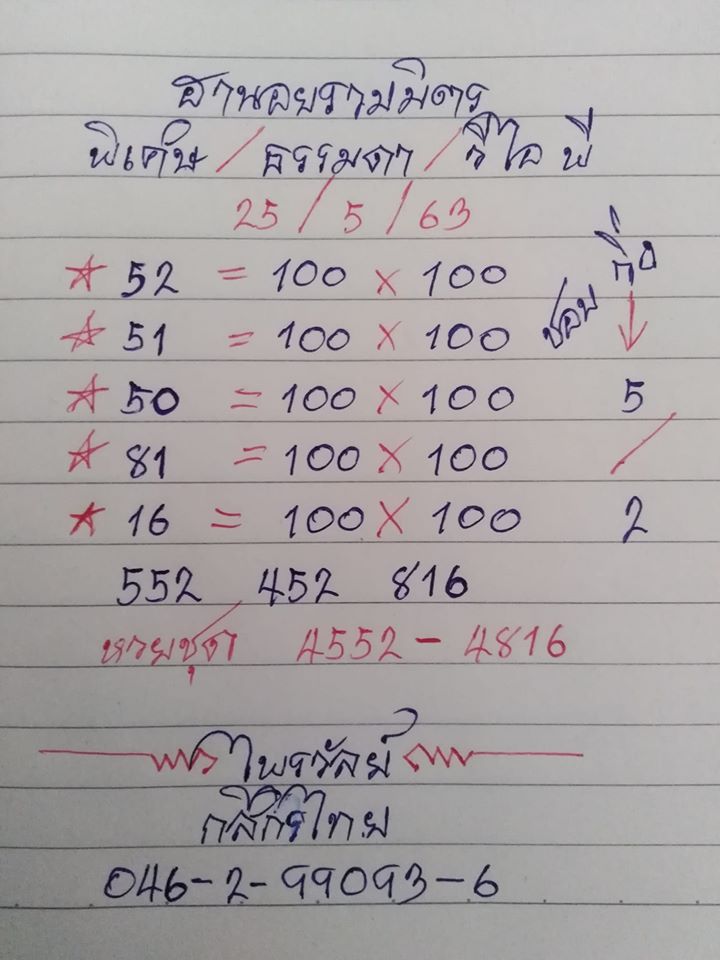 ฮานอยรวมมิตร
พิเศษ / ธรรมดา / วีไอพี
25 / 5 / 63
☆ 52 = 100 × 100
☆ 51 = 100 × 100
☆ 50 = 100 × 100
☆ 81 = 100 × 100
★ 16 = 100 × 100
ชอบ
5
/
2
552 452 816
หวยชุด 4552 - 4816
ไพรวัลย์
กสิกรไทย
046-2-99093-6